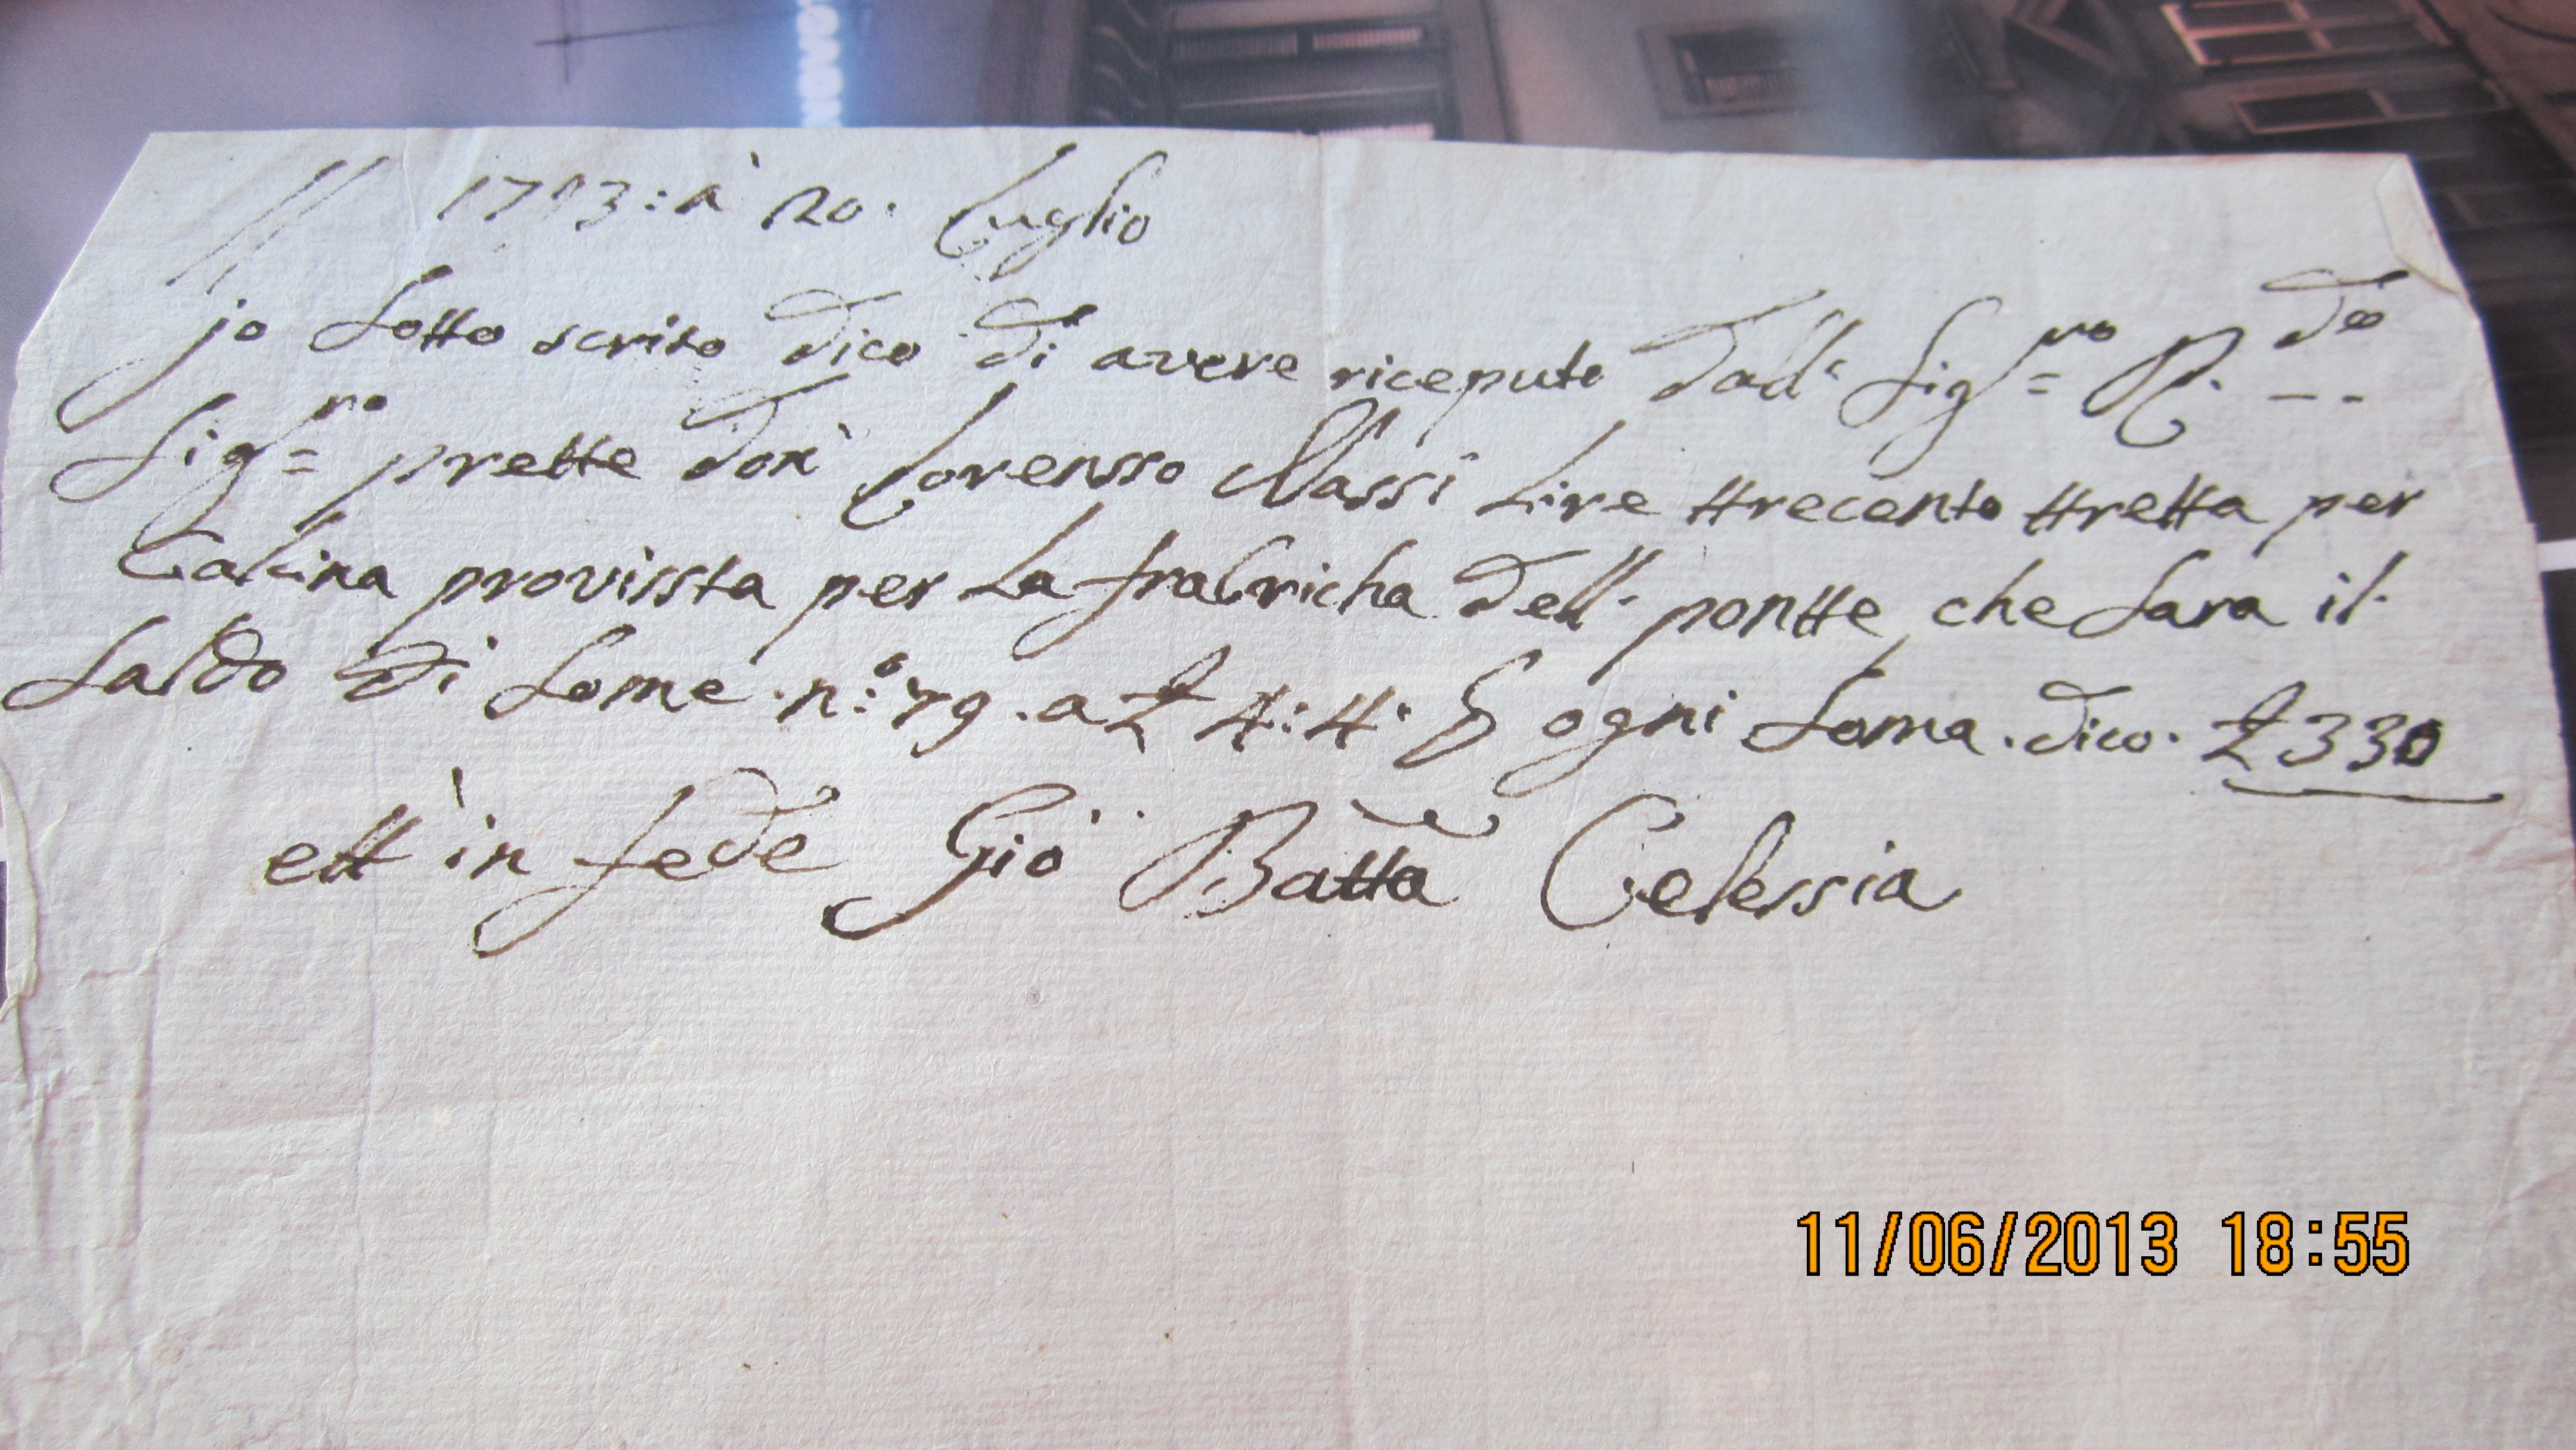 1793: à 20. Luglio
jo Sotto scrito dico di avere riceputo dall Sig.ro R.do
Sig.ro prette don Lorensso Massi Lire ttrecento ttretta per
Calcina provissta per La frabricha dell. pontte che Sara il.
Saldo di Some n.o 79. a £ 4: 4. ogni Soma. dico. £ 330
ett in fede Gio Batta Celessia
11/06/2013 18:55